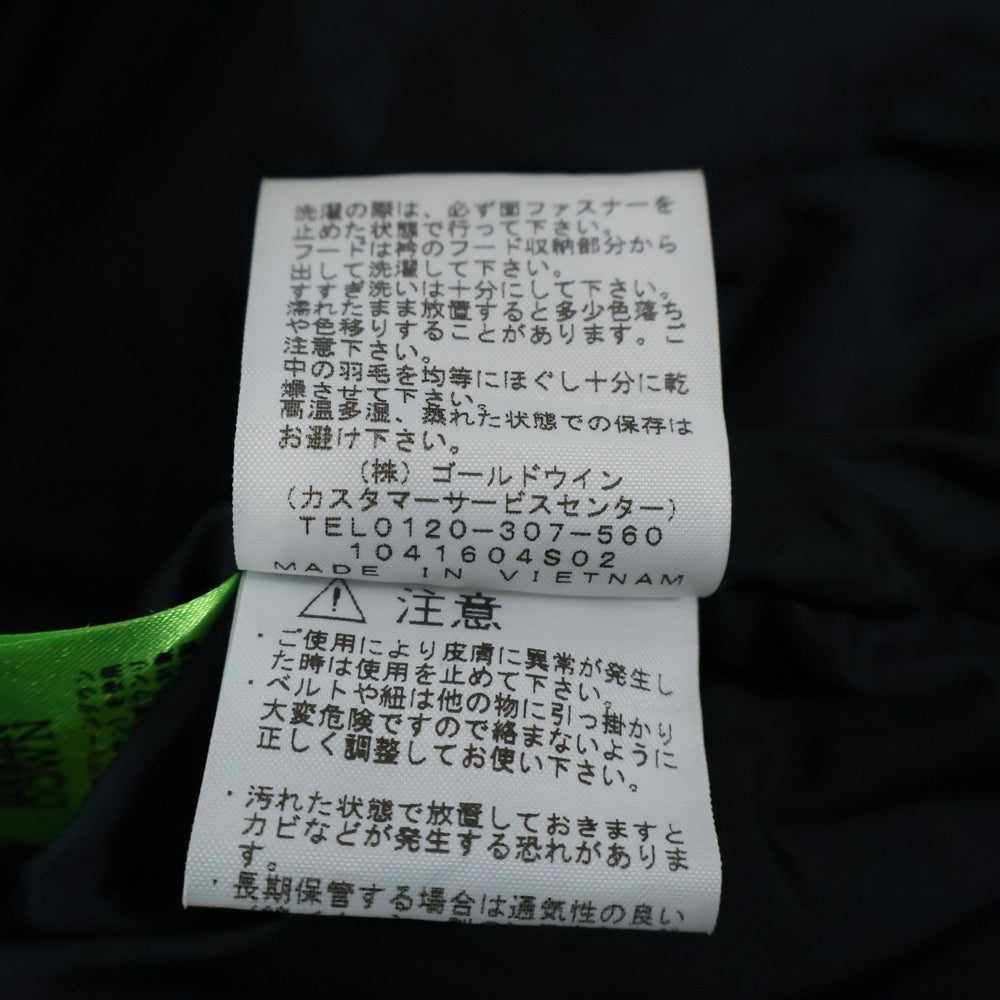 洗濯の際は、必ず面ファスナーを
止めた状態で行って下さい。
フードは衿のフード収納部分から
出して洗濯して下さい。
すすぎ洗いは十分にして下さい。
濡れたまま放置すると多少色落ち
や色移りすることがあります。ご
注意下さい。
中の羽毛を均等にほぐし十分に乾
燥させて下さい。
高温多湿、蒸れた状態での保存は
お避け下さい。
(株)ゴールドウイン
(カスタマーサービスセンター)
TEL0120-307-560
1041604S02
MADE IN VIETNAM
注意
・ご使用により皮膚に異常が発生し
た時は使用を止めて下さい。
・ベルトや紐は他の物に引っ掛かり
大変危険ですので絡まないように
正しく調整してお使い下さい。
・汚れた状態で放置しておきますと
カビなどが発生する恐れがありま
す。
・長期保管する場合は通気性の良い
DOWN